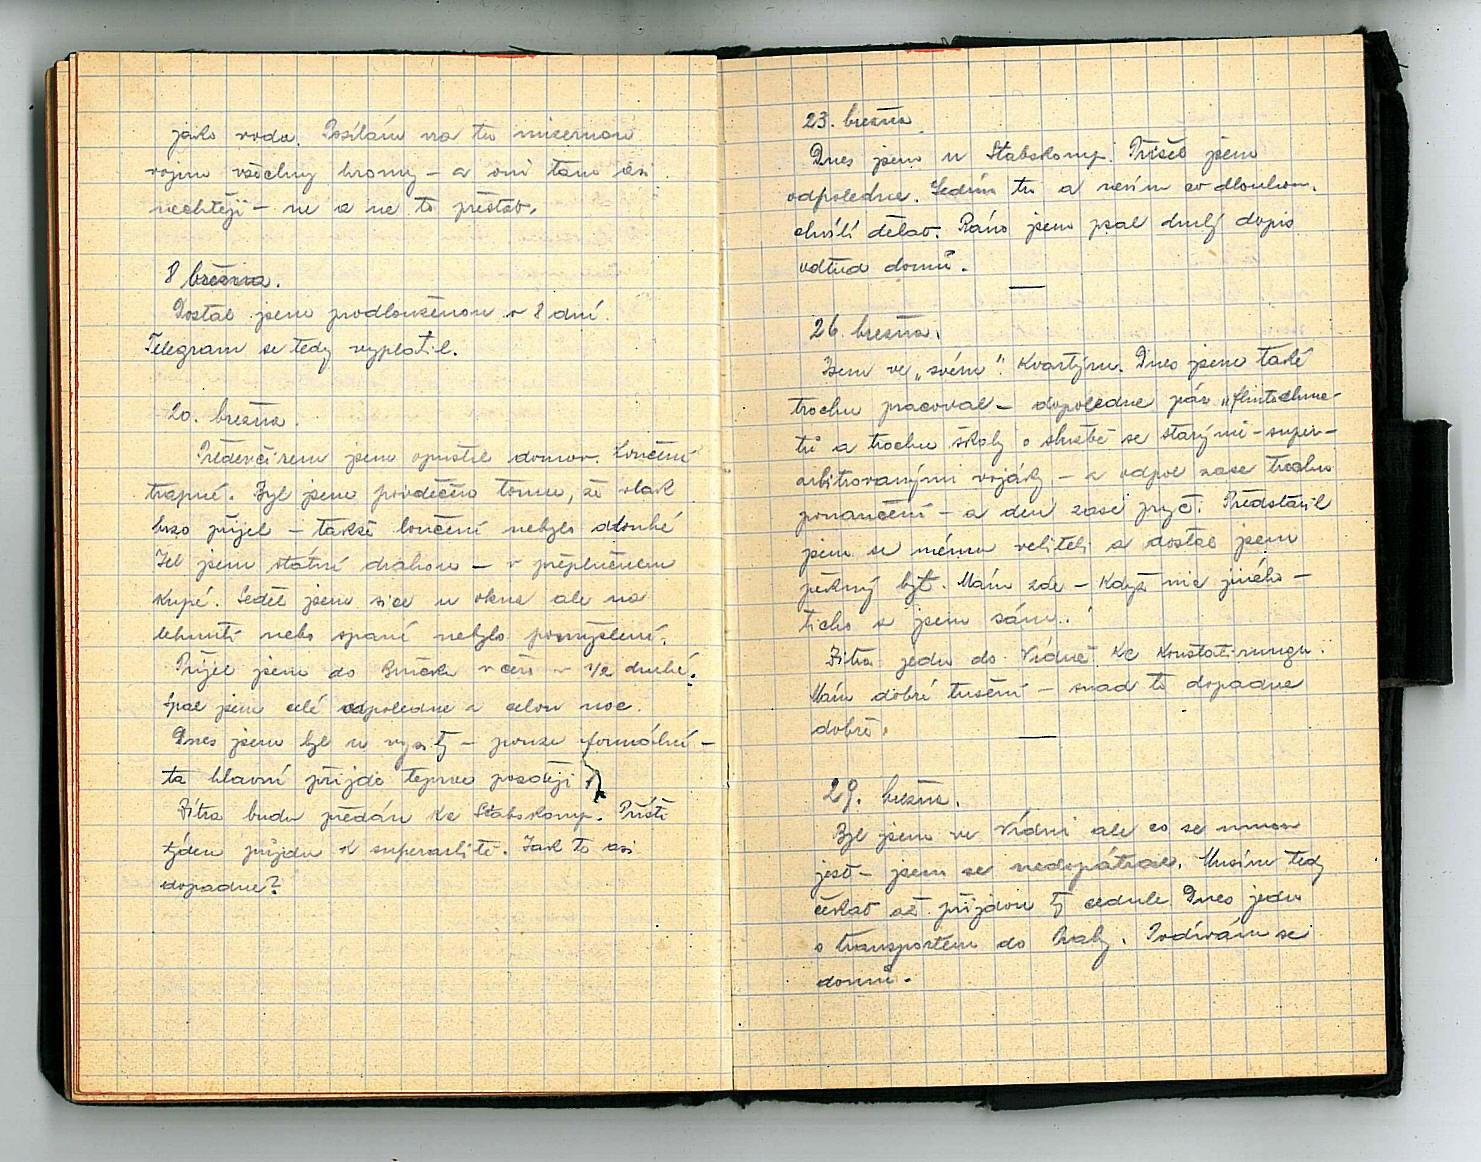 jako voda. Posílám na tu mizernou
vojnu všechny hromy – a oni tam asi
nechtějí – ne a ne to přestat.
8 března.
Dostal jsem prodlouženou o 8 dní.
Telegram se tedy vyplatil.
20. března.
Předevčírem jsem opustil domov. Loučení
trapné. Byl jsem povděčen tomu, že vlak
brzo přijel – takže loučení nebylo dlouhé
Jel jsem státní drahou – v přeplněném
kupé. Seděl jsem sice u okna ale na
lehnutí nebo spaní nebylo pomyšlení.
Přijel jsem do Brucku včera v 1/2 druhé.
Spal jsem celé odpoledne a celou noc.
Dnes jsem byl u vizity – pouze formální –
ta hlavní přijde teprve později
Zítra budu předán ke Stabskomp. Příští
týden přijdu k superarbitě. Jak to asi
dopadne?
23. března
Dnes jsem u Stabskomp. Přišel jsem
odpoledne. Sedím tu a nevím co dlouhou
chvílí dělat. Ráno jsem psal druhý dopis
odtud domů.
26. března.
Jsem ve „svém“ kvartýru. Dnes jsem také
trochu pracoval – dopoledne pár
a trochu školy o službě se starými – super-
arbitrovanými vojáky – a odpol zase trochu
ponaučení – a den zase pryč. Představil
jsem se mému veliteli a dostal jsem
pěkný byt. Mám zde – když nic jiného –
ticho a jsem sám.
Zítra jedu do Vídně ke Konstatirungu.
Mám dobré tušení – snad to dopadne
dobře.
29. března.
Byl jsem ve Vídni ale co se mnou
jest – jsem se nedopátral. Musím tedy
čekat až přijdou ty cedule. Dnes jedu
s transportem do Prahy. Podívám se
domů.